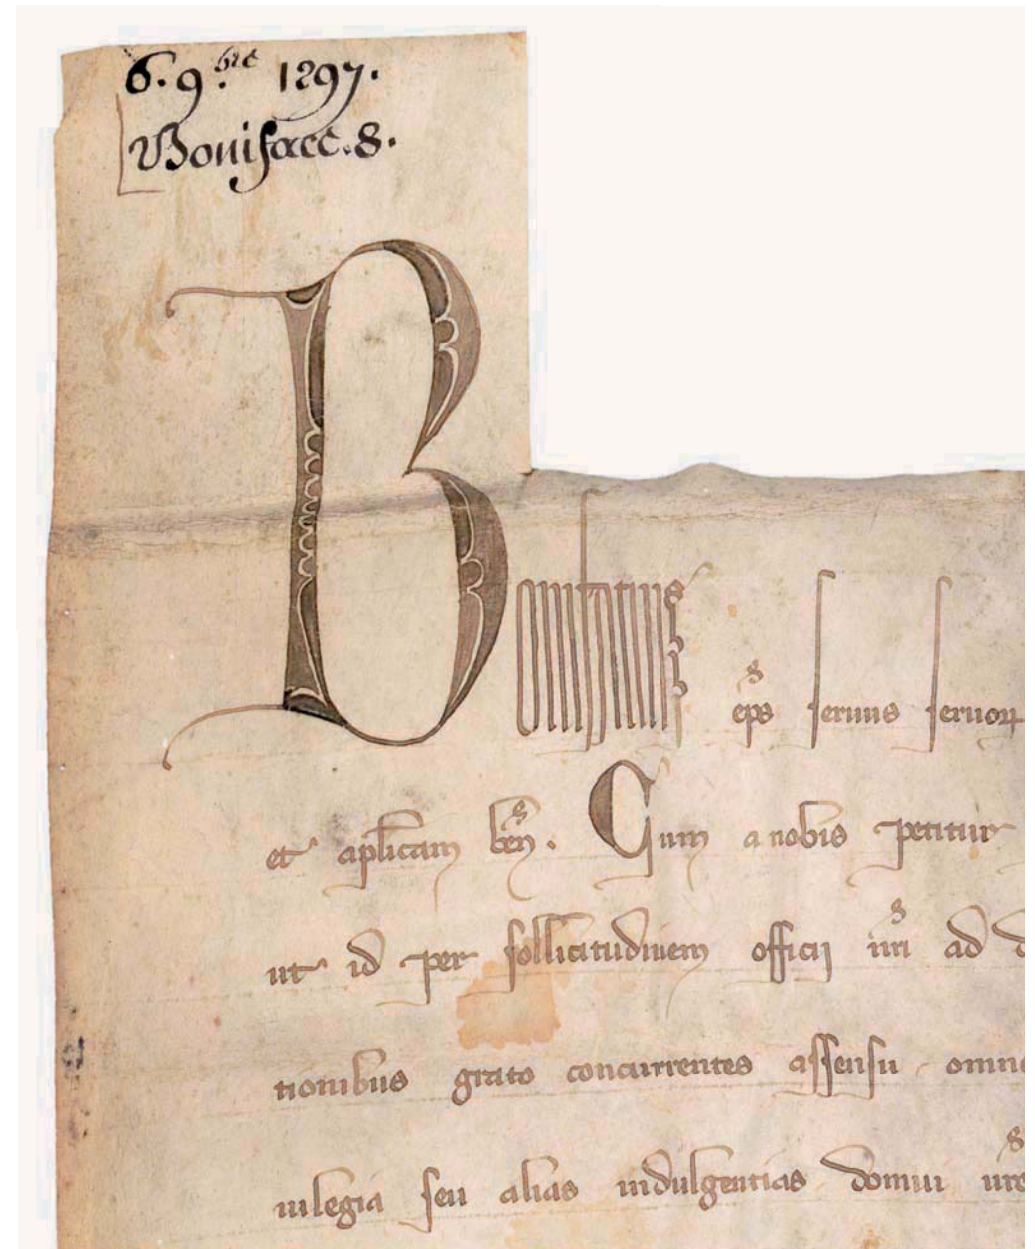 6. 9.bre 1297.
Boniface. 8.
Bonifatius ep̅s seruus seruoꝝ
et ap̅licam ben̅. Cum a nobis petitur
ut id per sollicitudinem officij nr̅i ad d
tionibus grato concurrentes assensu omne
uilegia seu alias indulgentias domui ur̅e